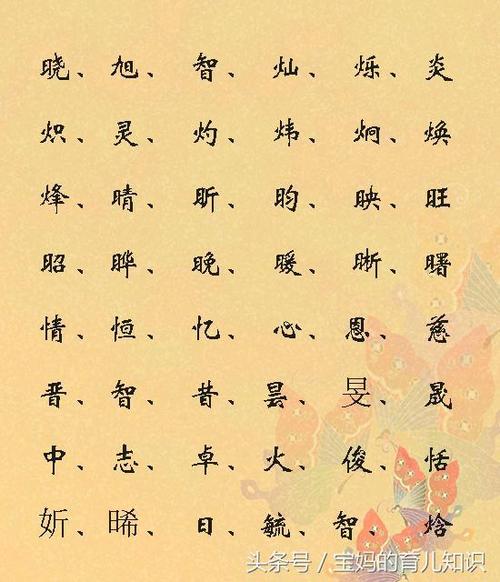 晓、旭、智、灿、烁、炎
炽、灵、灼、炜、炯、焕
烽、晴、昕、昀、映、旺
昭、晔、晚、暖、晰、曙
情、恒、忆、心、恩、慈
晋、智、昔、昙、旻、晟
中、志、卓、火、俊、恬
妡、晞、日、毓、智、焓
头条号／宝妈的育儿知识